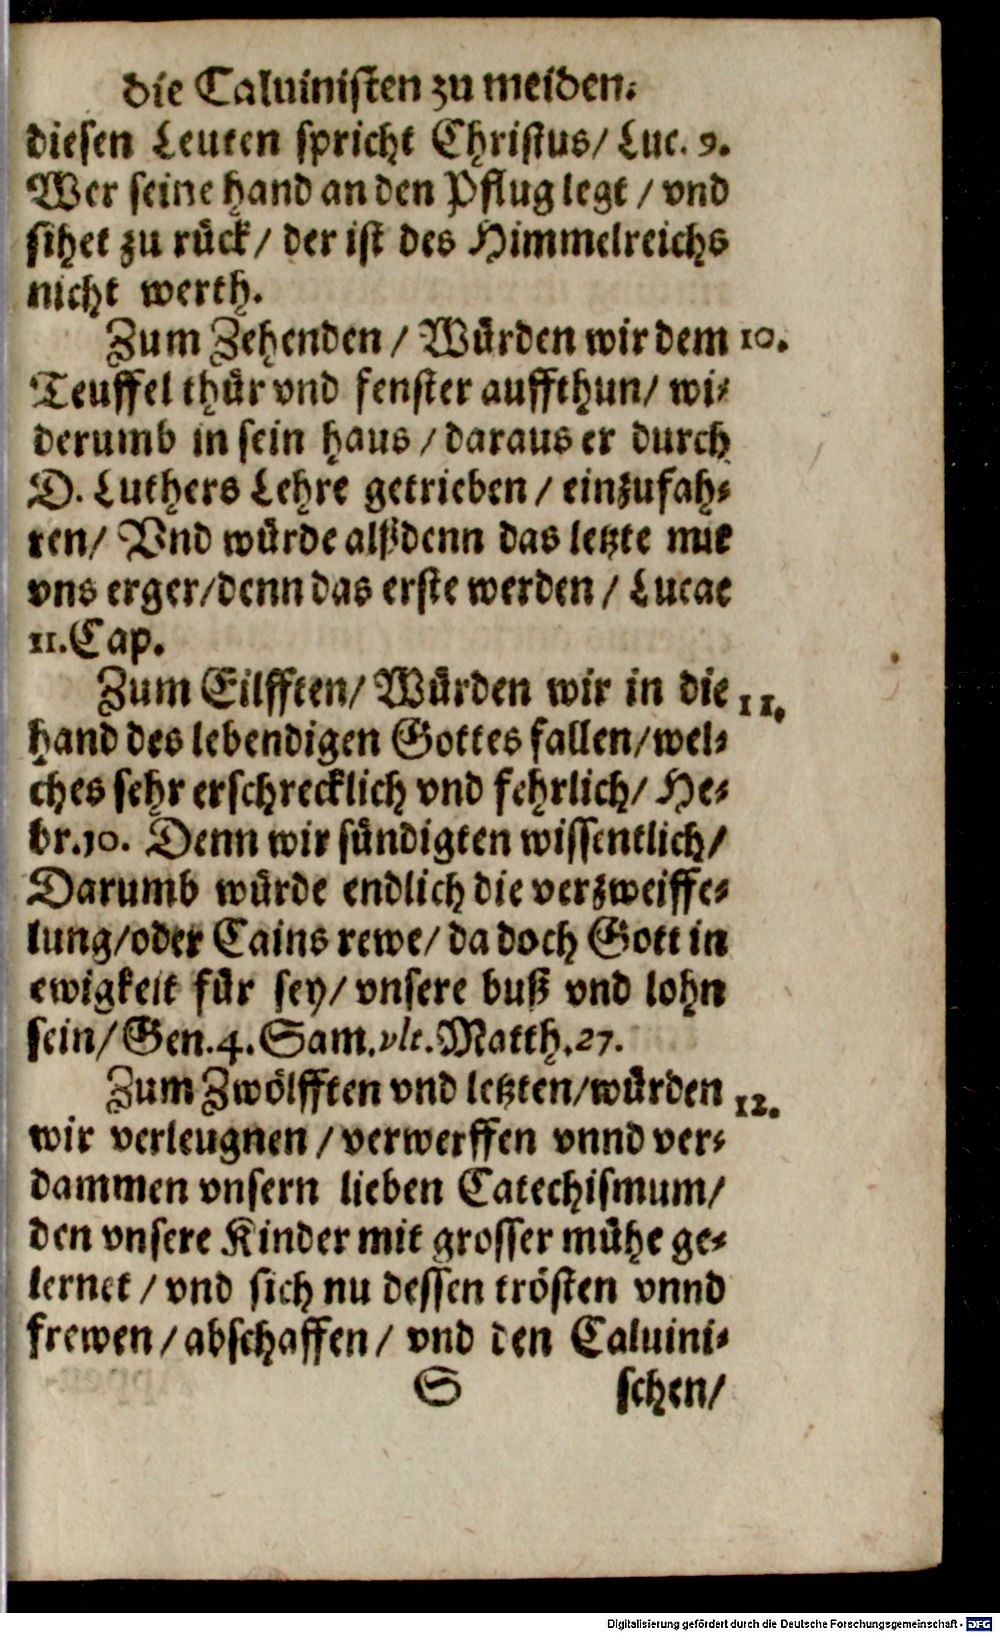 die Caluinisten zu meiden.
diesen Leuten spricht Christus/ Luc. 9.
Wer seine hand an den Pflug legt / vnd
sihet zu rück/ der ist des Himmelreichs
nicht werth.
Zum Zehenden / Würden wir dem 10.
Teuffel thür vnd fenster auffthun/ wi-
derumb in sein haus / daraus er durch
D. Luthers Lehre getrieben / einzufah-
ren/ Vnd würde alßdenn das letzte mit
vns erger/denn das erste werden / Lucae
11.Cap.
Zum Eilfften/ Würden wir in die 11.
hand des lebendigen Gottes fallen/wel-
ches sehr erschrecklich vnd fehrlich/ He-
br.10. Denn wir sündigten wissentlich/
Darumb würde endlich die verzweiffe-
lung/oder Cains rewe/ da doch Gott in
ewigkeit für sey/ vnsere buß vnd lohn
sein/ Gen.4. Sam.vlt.Matth.27.
Zum Zwölfften vnd letzten/würden 12.
wir verleugnen / verwerffen vnnd ver-
dammen vnsern lieben Catechismum/
den vnsere Kinder mit grosser mühe ge-
lernet / vnd sich nu dessen trösten vnnd
frewen / abschaffen/ vnd den Caluini-
S schen/
Digitalisierung gefördert durch die Deutsche Forschungsgemeinschaft - DFG